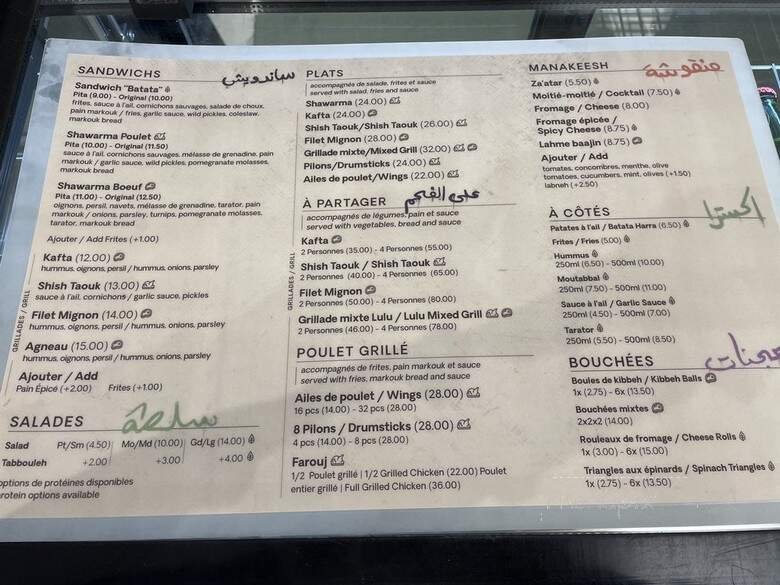 SANDWICHS ساندويش
Sandwich "Batata"
Pita (9.00) - Original (10.00)
frites, sauce à l'ail, cornichons sauvages, salade de choux,
pain markouk / fries, garlic sauce, wild pickles, coleslaw,
markouk bread
Shawarma Poulet
Pita (10.00) - Original (11.50)
sauce à l'ail, cornichons sauvages, mélasse de grenadine, pain
markouk / garlic sauce, wild pickles, pomegranate molasses,
markouk bread
Shawarma Boeuf
Pita (11.00) - Original (12.50)
oignons, persil, navets, mélasse de grenadine, tarator, pain
markouk / onions, parsley, turnips, pomegranate molasses,
tarator, markouk bread
Ajouter / Add Frites (+1.00)
GRILLADES / GRILL
Kafta (12.00)
hummus, oignons, persil / hummus, onions, parsley
Shish Taouk (13.00)
sauce à l'ail, cornichons / garlic sauce, pickles
Filet Mignon (14.00)
hummus, oignons, persil / hummus, onions, parsley
Agneau (15.00)
hummus, oignons, persil / hummus, onions, parsley
Ajouter / Add
Pain Épicé (+2.00) Frites (+1.00)
SALADES
Salad Pt/Sm (4.50) Mo/Md (10.00) Gd/Lg (14.00)
Tabbouleh +2.00 +3.00 +4.00
options de protéines disponibles
protein options available
PLATS
accompagnés de salade, frites et sauce
served with salad, fries and sauce
Shawarma (24.00)
Kafta (24.00)
Shish Taouk/Shish Taouk (26.00)
Filet Mignon (28.00)
Grillade mixte/Mixed Grill (32.00)
Pilons/Drumsticks (24.00)
Ailes de poulet/Wings (22.00)
À PARTAGER على الفحم
accompagnés de légumes, pain et sauce
served with vegetables, bread and sauce
GRILLADES / GRILL
Kafta
2 Personnes (35.00) - 4 Personnes (55.00)
Shish Taouk / Shish Taouk
2 Personnes (40.00) - 4 Personnes (65.00)
Filet Mignon
2 Personnes (50.00) - 4 Personnes (80.00)
Grillade mixte Lulu / Lulu Mixed Grill
2 Personnes (46.00) - 4 Personnes (78.00)
POULET GRILLÉ
accompagnés de frites, pain markouk et sauce
served with fries, markouk bread and sauce
Ailes de poulet / Wings (28.00)
16 pcs (14.00) - 32 pcs (28.00)
8 Pilons / Drumsticks (28.00)
4 pcs (14.00) - 8 pcs (28.00)
Farouj
1/2 Poulet grillé | 1/2 Grilled Chicken (22.00) Poulet
entier grillé | Full Grilled Chicken (36.00)
MANAKEESH منقوشة
Za'atar (5.50)
Moitié-moitié / Cocktail (7.50)
Fromage / Cheese (8.00)
Fromage épicée /
Spicy Cheese (8.75)
Lahme baajin (8.75)
Ajouter / Add
tomates, concombres, menthe, olive
tomatoes, cucumbers, mint, olives (+1.50)
labneh (+2.50)
À CÔTÉS اكسترا
Patates à l'ail / Batata Harra (6.50)
Frites / Fries (5.00)
Hummus
250ml (6.50) - 500ml (10.00)
Moutabbal
250ml (7.50) - 500ml (11.00)
Sauce à l'ail / Garlic Sauce
250ml (4.50) - 500ml (7.00)
Tarator
250ml (5.50) - 500ml (8.50)
BOUCHÉES
Boules de kibbeh / Kibbeh Balls
1x (2.75) - 6x (13.50)
Bouchées mixtes
2x2x2 (14.00)
Rouleaux de fromage / Cheese Rolls
1x (3.00) - 6x (15.00)
Triangles aux épinards / Spinach Triangles
1x (2.75) - 6x (13.50)